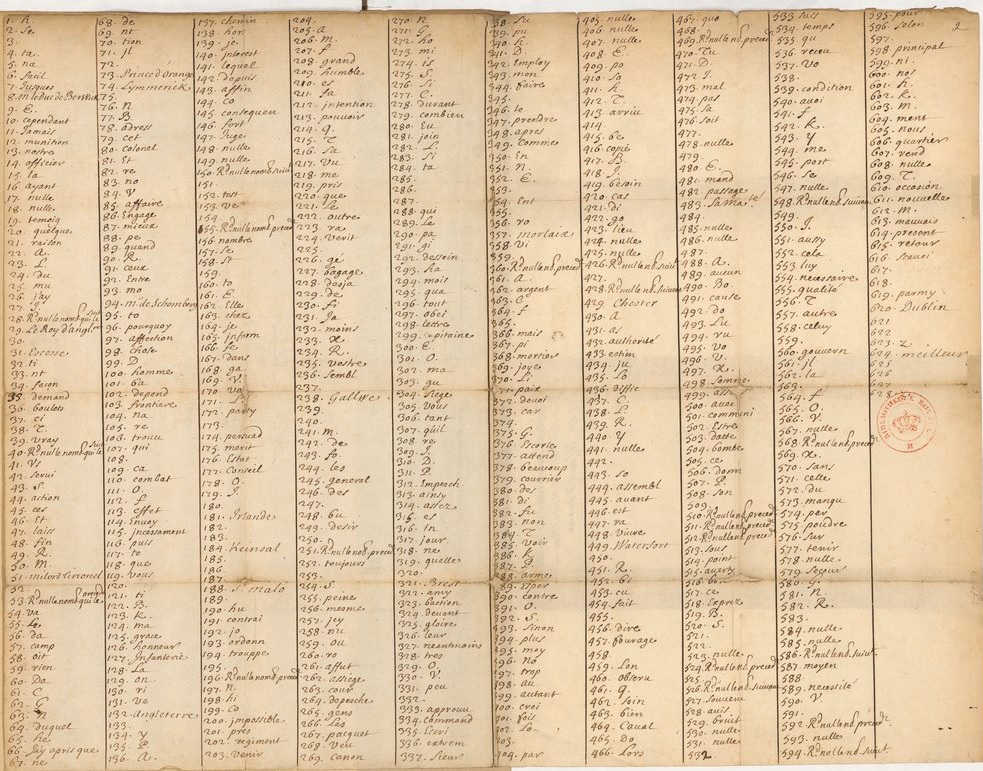 2. Se
3.
4. ta
5. na
6. facil
7. Jusques
8. m. le duc de Berwick
9. E.
10. cependant
11. Jamais
12. munition
13. nostre
14. officier
15. la
16. ayant
17. nulle
18. nulle
19. temoig
20. quelque
21. raison
22. A.
23. L.
24. du
25. mu
26. jay
27. J.
29. Le Roy d'anglre
30.
31. Escosse
32. ti
33. nt
34. facon
35 demand
36. boulets
37. ci
38. T.
39. vray
41. Vs
42. servi
43. S.
44. action
45. ces
46. et
47. laiss
48. fin
49. R.
50. M.
52.
54. va
55. Le
56. da
57. camp
58. oit
59. rien
60. Da
61. C
62. G
63. n
64. duquel
66. Jay apris que
67. ne
68. de
69. nt
70. tion
71. jl
72.
73. Prince d'Orange
74. Lymmerick
75.
76. N
77. B
78. adress
79. cet
80. Colonel
81. Et
82. re
83. no
84. V
85. affaire
86. Engage
87. mieux
88. pe
89. quand
90. R.
91. ceux
92. Entre
93. mo
94. m. de Schomberg
95. to
96. pourquoy
97. affection
98. chose
99. D
100. homme
101. ba
102. depend
103. frontiere
104. na
105. re
106. trouu
107. qui
108.
109. ca
110. combat
111. O.
112. f
113. effet
114. Envoy
115. jncessament
116. puis
117. to
118. que
119. vous
120.
121. ti
122. B.
123. K.
124. ma
125. grace
126. honneur
127. Infanterie
128. La
129. on.
130. ri
131. ve
132. Angleterre
133.
134. y
135. P
136. A.
137. chemin
138. hors
139. je
140. jnterest
141. lequel
142. depuis
143. affin
144. co
145. consequen
146. fort
147. Juger
148. nulle
149. nulle
150. R. nulle nomb. suiut
151.
152. test
153. ve
154.
155. R. nulle nomb. preced
156. nombre
157. se
158. st
159.
160. to
161. E.
162. Elle
163. chez
164. je
165. jnform
166. fe
167. dans
168. ga
169. V.
171. L.
172. party
173.
174. persuad
175. merit
176. Estat
177. Conseil
178. O.
179. J.
180.
181. Irlande
182.
183.
184. Keinsal
185.
186.
187.
188. St. malo
189.
190. hu
191. contrai
192. jo
193. ordonn
194. trouppe
195.
196. R. nulle nomb. preced
197. n.
198. hi
199. Co
200. jmpossible
201. pres
202. regiment
203. venir
204.
205. a
206. m.
207. f
208. grand
209. humble
210. es
211. fa
212. jntention
213. pouvoir
214. q.
215. T.
216. Sa
217. vu
218. me
219. pris
220. que
221. Se
222. outre
223. ra
224. verit
225.
226. ge
227. bagage
228. deja
229. de
230. fi
231. Ja
232. moins
233. x.
234. R.
235. vostre
236. sembl
237.
238. Gallwe
239.
240.
241. m.
242. de
243. fo.
244. leo
245. general
246. des
247.
248. bu
249. desir
250.
251. R. nulle nb. preced
252. toujours
253.
254. S.
255. peine
256. mesme
257. jey
258. nu
259. ou
260. ro
261. affut
262. assiege
263. cour
264. depesche
265. gens
266. Les
267. pacquet
268. veu
269. canon
270. n
271. G
272. ho
273. mi
274. is
275. S.
276. Si
277. C.
278. durant
279. combien
280. Eu
281. join
282. L.
283. Si
284. ta
285.
286.
287.
288. qui
289. Le
290. pa
291. gi
292. Dessein
293. ha
294. mois
295. qua
296. tout
297. obei
298. lettre
299. capitaine
300. E
301. O.
302. ma
303. gu
304. Siege
305. vous
306. tant
307. quil
308. re
309. J.
310. D
311. P.
312. Impesch
313. ainsy
314. assez
315. es
316. In
317. jour
318. ne
319. quelle
320.
321. Brest
322. amy
323. bastion
324. devant
325. gloire
326. leur
327. neantmoins
328. trop
329. O.
330. V.
331. peu
332.
333. approuu
334. command
335. Escri
336. extrem
337. Sieur
338. Su
339. pu
341. D.
342. Employ
343. mon
344. faire
345.
346. te
347. prendre
348. apres
349. Comme
350. En
351. n.
352. E.
353.
354. Ent
355.
356. ro
357. morlaix
358. Vi
359.
360. R. nulle nb. preced
361. A
362. argent
363. C
364. f
365.
366. mais
367. pi
368. mortier
370. Li
371. paix
372. devoi
373. car
374.
375. G.
376. Escorte
377. attend
378. beaucoup
379. courrier
380. des
381. di
382. fu
383. non
384. T.
385. voir
386. k
387. D.
388. arme
389. esper
390. contre
391. O.
392. S.
393. Sinon
394. plus
395. moy
396. no
397. trop
398. au
399. autant
400. croi
401. fois
402. Lo
403.
404. par
405. nulle
406. nulle
407. nulle
408. E.
409. po
410. so
411. h
412. T.
413. arriu
414.
415. be
416. copie
417. B
418. J.
419. besoin
420. cas
421. Di
422. go
423. lieu
424. nulle
425. nulle
426. R. nulle nb. suiut
427.
428. R. nulle nb. suiuem
429. Chester
430. A
431. as
432. authorité
433. estim
434. ju
435. Lo
436. diffic
437. C.
438. L.
439. R.
440. y
441. nulle
442.
443. so
444. assembl
445. avant
446. est
447. na
448. vivre
449. Waterfort
450.
451. R.
452. bi
453. cu
454. fait
455.
456. dire
457. fourage
458.
459. Lon
460. observ
461. q.
462. soin
463. bien
464. Caval
465. Do
466. Lors
467. quo
468.
469. R. nulle nb. preced
470. Tu
471. D.
472. J.
473. mal
474. pas
475. ta
476. soit
477.
478. nulle
479.
480. E.
481. mand
482. passage
483. Sa Maté
484.
485. nulle
486. nulle
487.
488. A.
489. aucun
490. Bo
491. cause
492. do
493. Lu
494. ru
495. vo
496. V.
497. x.
498. somme
500. avec
501. communi
502. Estre
503. datte
504. bombe
505. ce
506. dom
507. P.
508. son
509.
510. R. nulle nb. preced
511. R. nulle nb. preced
512. R. nulle nb. preced
513. sous
514. point
515. averty
517. ce
518. Exprez
519. B.
520. S.
521.
522.
523. nulle
524. R. nulle nb. preced
525.
526. R. nulle nb. suiuem
527. Souuen
528. avis
529. bruit
530. nulle
531. nulle
532
533 suis
534. temps
535 qu
536 receu
537. Vo
538.
539. condition
540. avoi
541. f
542. K.
543. Y
544. me
545. port
546. se
547. nulle
548. R. nulle nb. suiuem
549.
550. J.
551. aussy
552. cela
553. luy
554. necessaire
555. qualité
556. T
557. autre
558. celuy
559.
560. gouvern
561. jl
562. la
563.
564. f
565. O.
566. V.
567. nulle
568. R. nulle nb. preced
569. x.
570. sans
571. celle
572. du
573. mangu
574. per
575. poudre
576. Sur
577. tenir
578. nulle
579. Segurs
580. G.
581. n
582. R.
583.
584. nulle
585. nulle
586. R. nulle nb. suiut
587. moyen
588.
589. necessité
590. V.
591.
592. R. nulle nb. preced
593. nulle
594. R. nulle nb. suiut
595. pour
596. selon
597.
598. principal
599. ni
600. nos
601. h.
602. K.
603. m.
604. mont
605. nous
606. quartier
607. rend
608. nulle
609. T.
610. occasion
611. nouvelle
612. m.
613. mauvais
614. present
615. retour
616. travoi
617.
618.
619. parmy
620. Dublin
621
622.
623. 2
624. meilleur
625
626
627
628
2